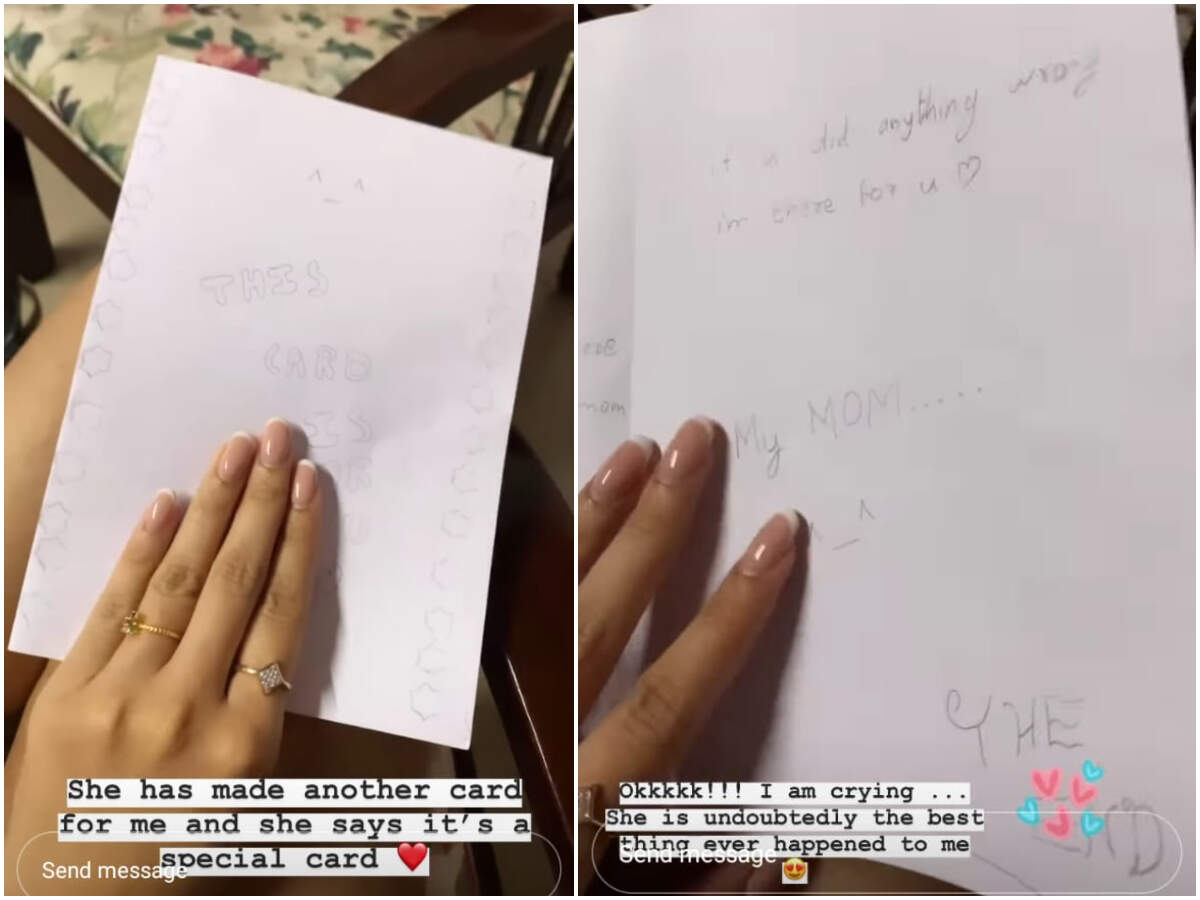 ^_^
THIS
CARD
IS
FOR
U
She has made another card
for me and she says it’s a
special card ❤️
Send message
if u did anything wrong
im there for u ♡
mom
My MOM.....
^_^
THE
END
Okkkkk!!! I am crying ...
She is undoubtedly the best
thing ever happened to me
😍
Send message